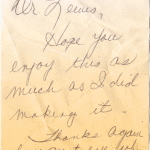 Dr. Lewis,
Hope you
enjoy this as
much as I did
making it
Thanks again